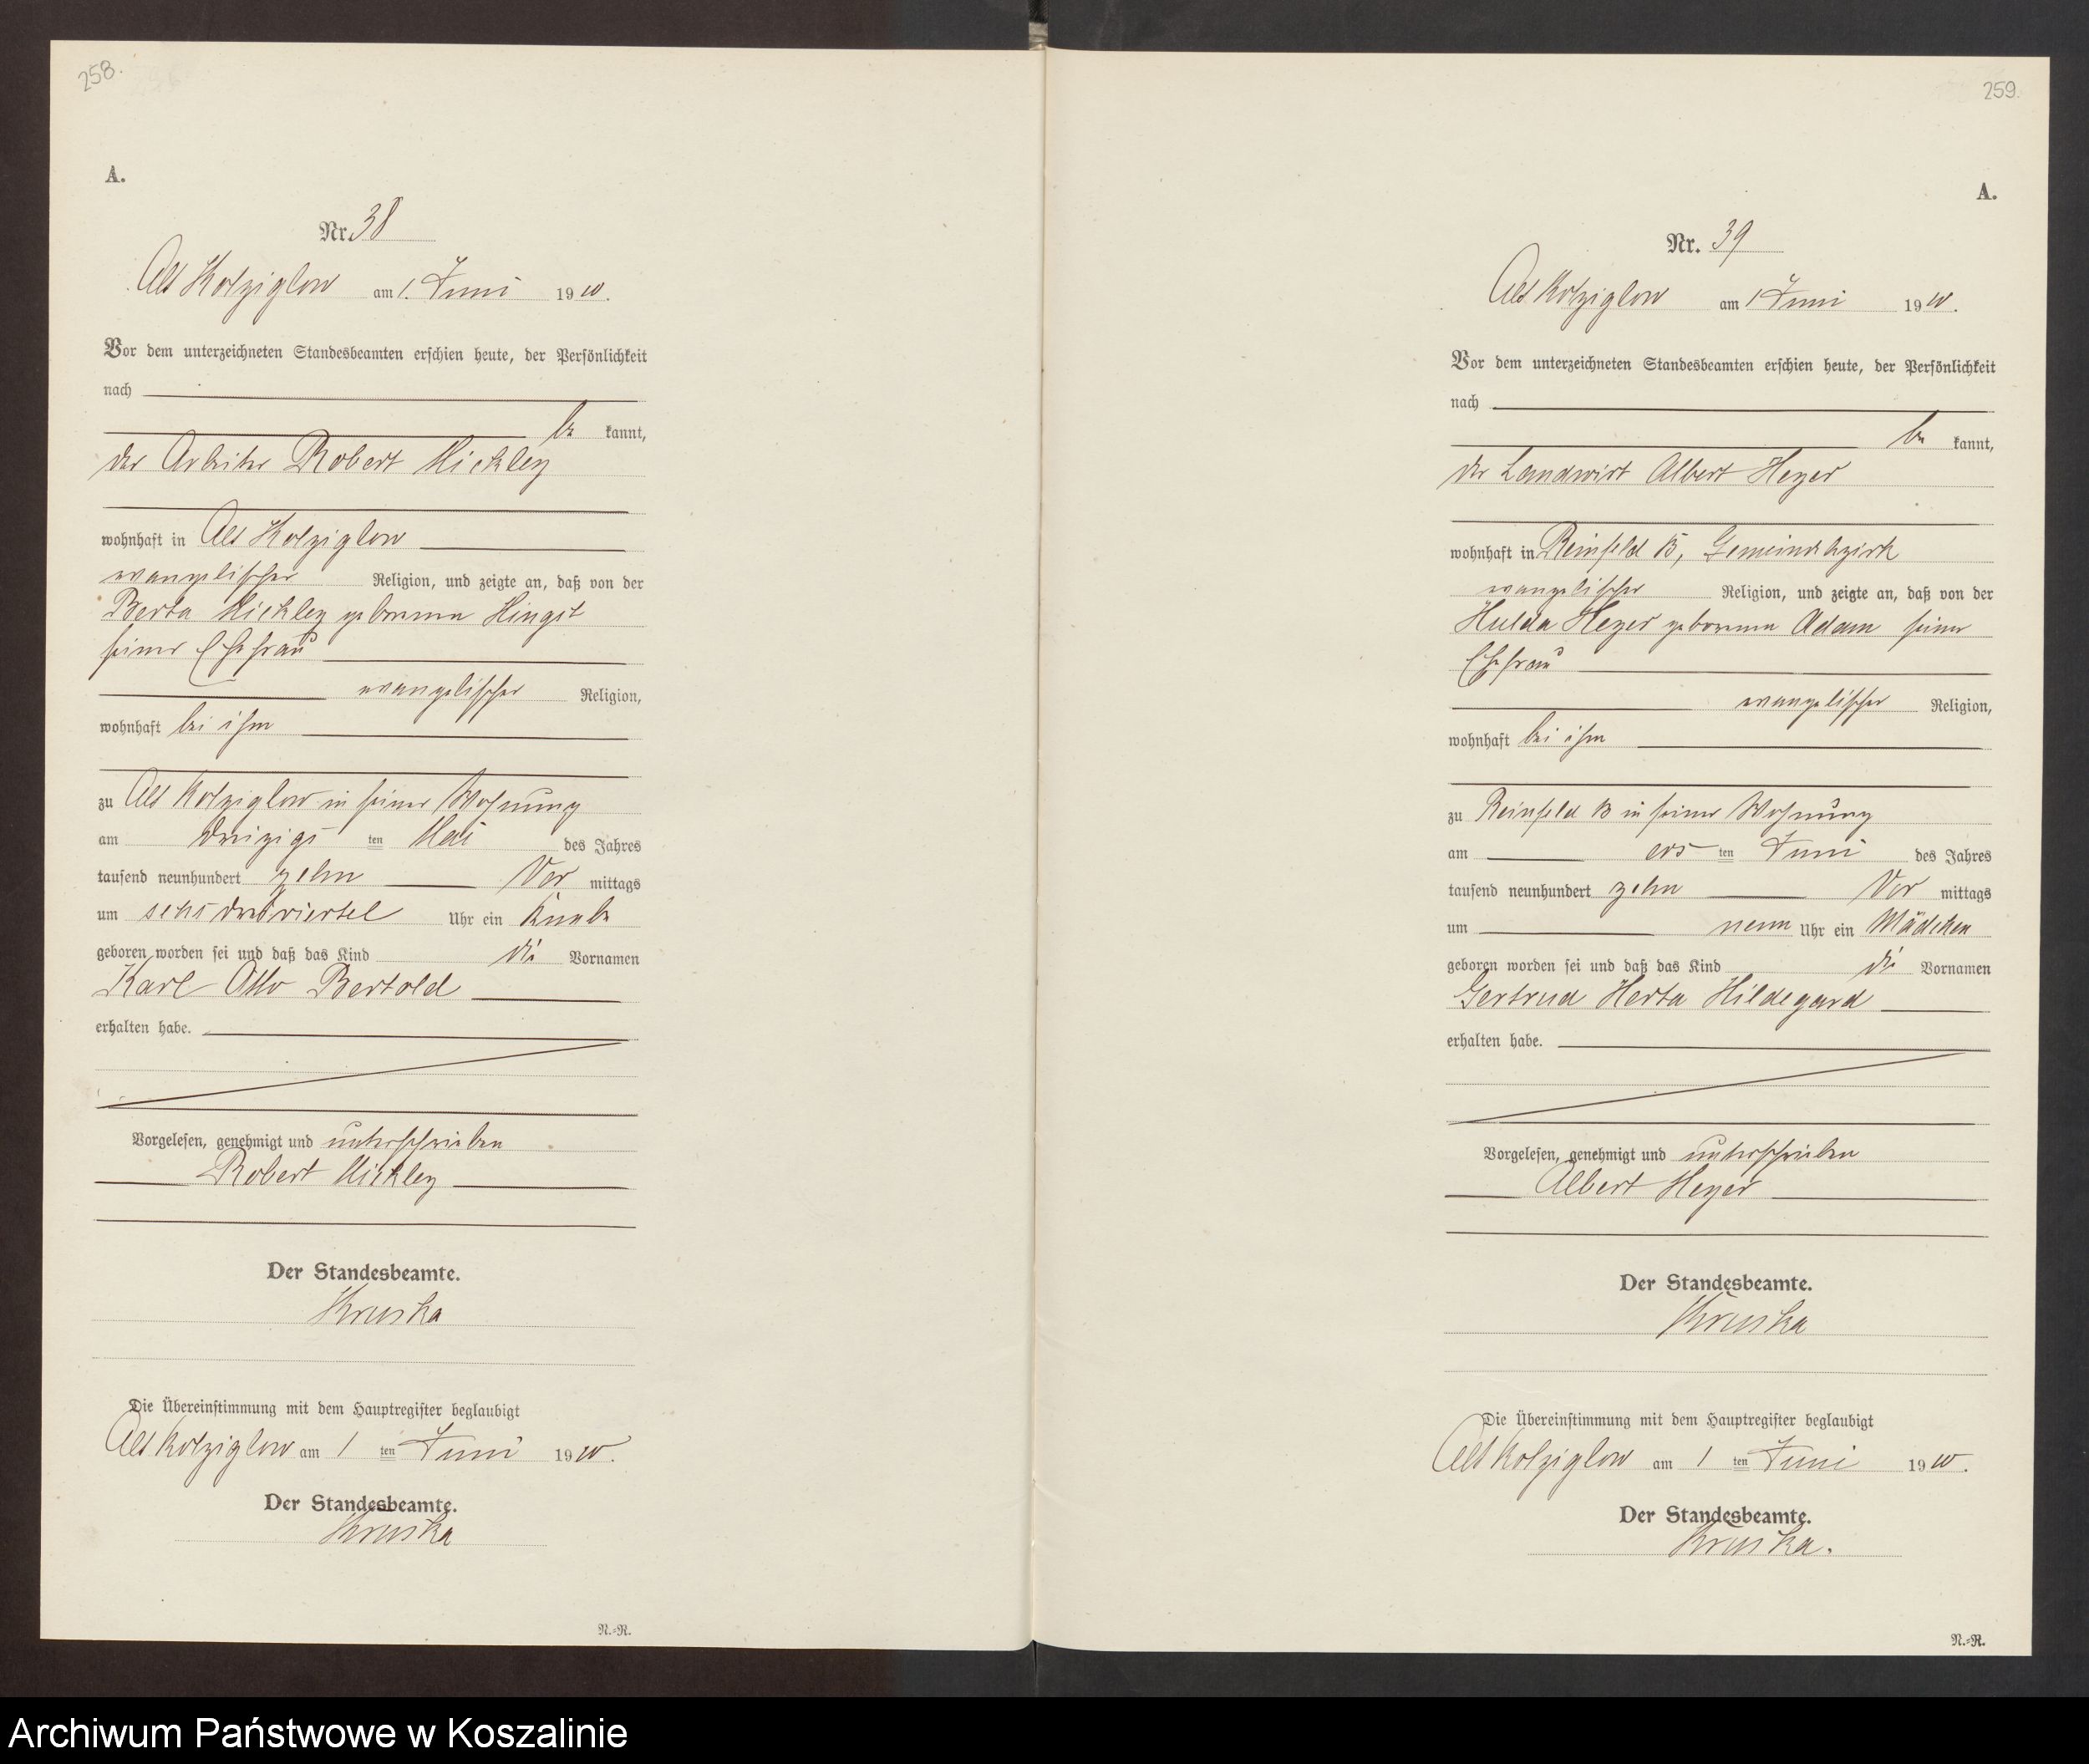 258.
A.
Nr. 38
Alt Kolziglow am 1. Juni 1910.
Vor dem unterzeichneten Standesbeamten erschien heute, der Persönlichkeit
nach
be kannt,
der Arbeiter Robert Mickley
wohnhaft in Alt Kolziglow
evangelischer Religion, und zeigte an, daß von der
Berta Mickley geborenen Hingst
seiner Ehefrau
evangelischer Religion,
wohnhaft bei ihm
zu Alt Kolziglow in seiner Wohnung
am dreizigs ten Mai des Jahres
tausend neunhundert zehn Vor mittags
um sechs dreiviertel Uhr ein Knabe
geboren worden sei und daß das Kind die Vornamen
Karl Otto Bertold
erhalten habe.
Vorgelesen, genehmigt und unterschrieben
Robert Mickley
Der Standesbeamte.
Kruska
Die Übereinstimmung mit dem Hauptregister beglaubigt
Alt Kolziglow am 1 ten Juni 1910.
Der Standesbeamte.
Kruska
N.=R.
259.
A.
Nr. 39
Alt Kolziglow am 1 Juni 1910.
Vor dem unterzeichneten Standesbeamten erschien heute, der Persönlichkeit
nach
be kannt,
der Landwirt Albert Heyer
wohnhaft in Reinfeld B, Gemeindebezirk
evangelischer Religion, und zeigte an, daß von der
Hulda Heyer geborenen Adam seiner
Ehefrau
evangelischer Religion,
wohnhaft bei ihm
zu Reinfeld B in seiner Wohnung
am ers ten Juni des Jahres
tausend neunhundert zehn Vor mittags
um neun Uhr ein Mädchen
geboren worden sei und daß das Kind die Vornamen
Gertrud Herta Hildegard
erhalten habe.
Vorgelesen, genehmigt und unterschrieben
Albert Heyer
Der Standesbeamte.
Kruska
Die Übereinstimmung mit dem Hauptregister beglaubigt
Alt Kolziglow am 1 ten Juni 1910.
Der Standesbeamte.
Kruska.
N.=R.
Archiwum Państwowe w Koszalinie